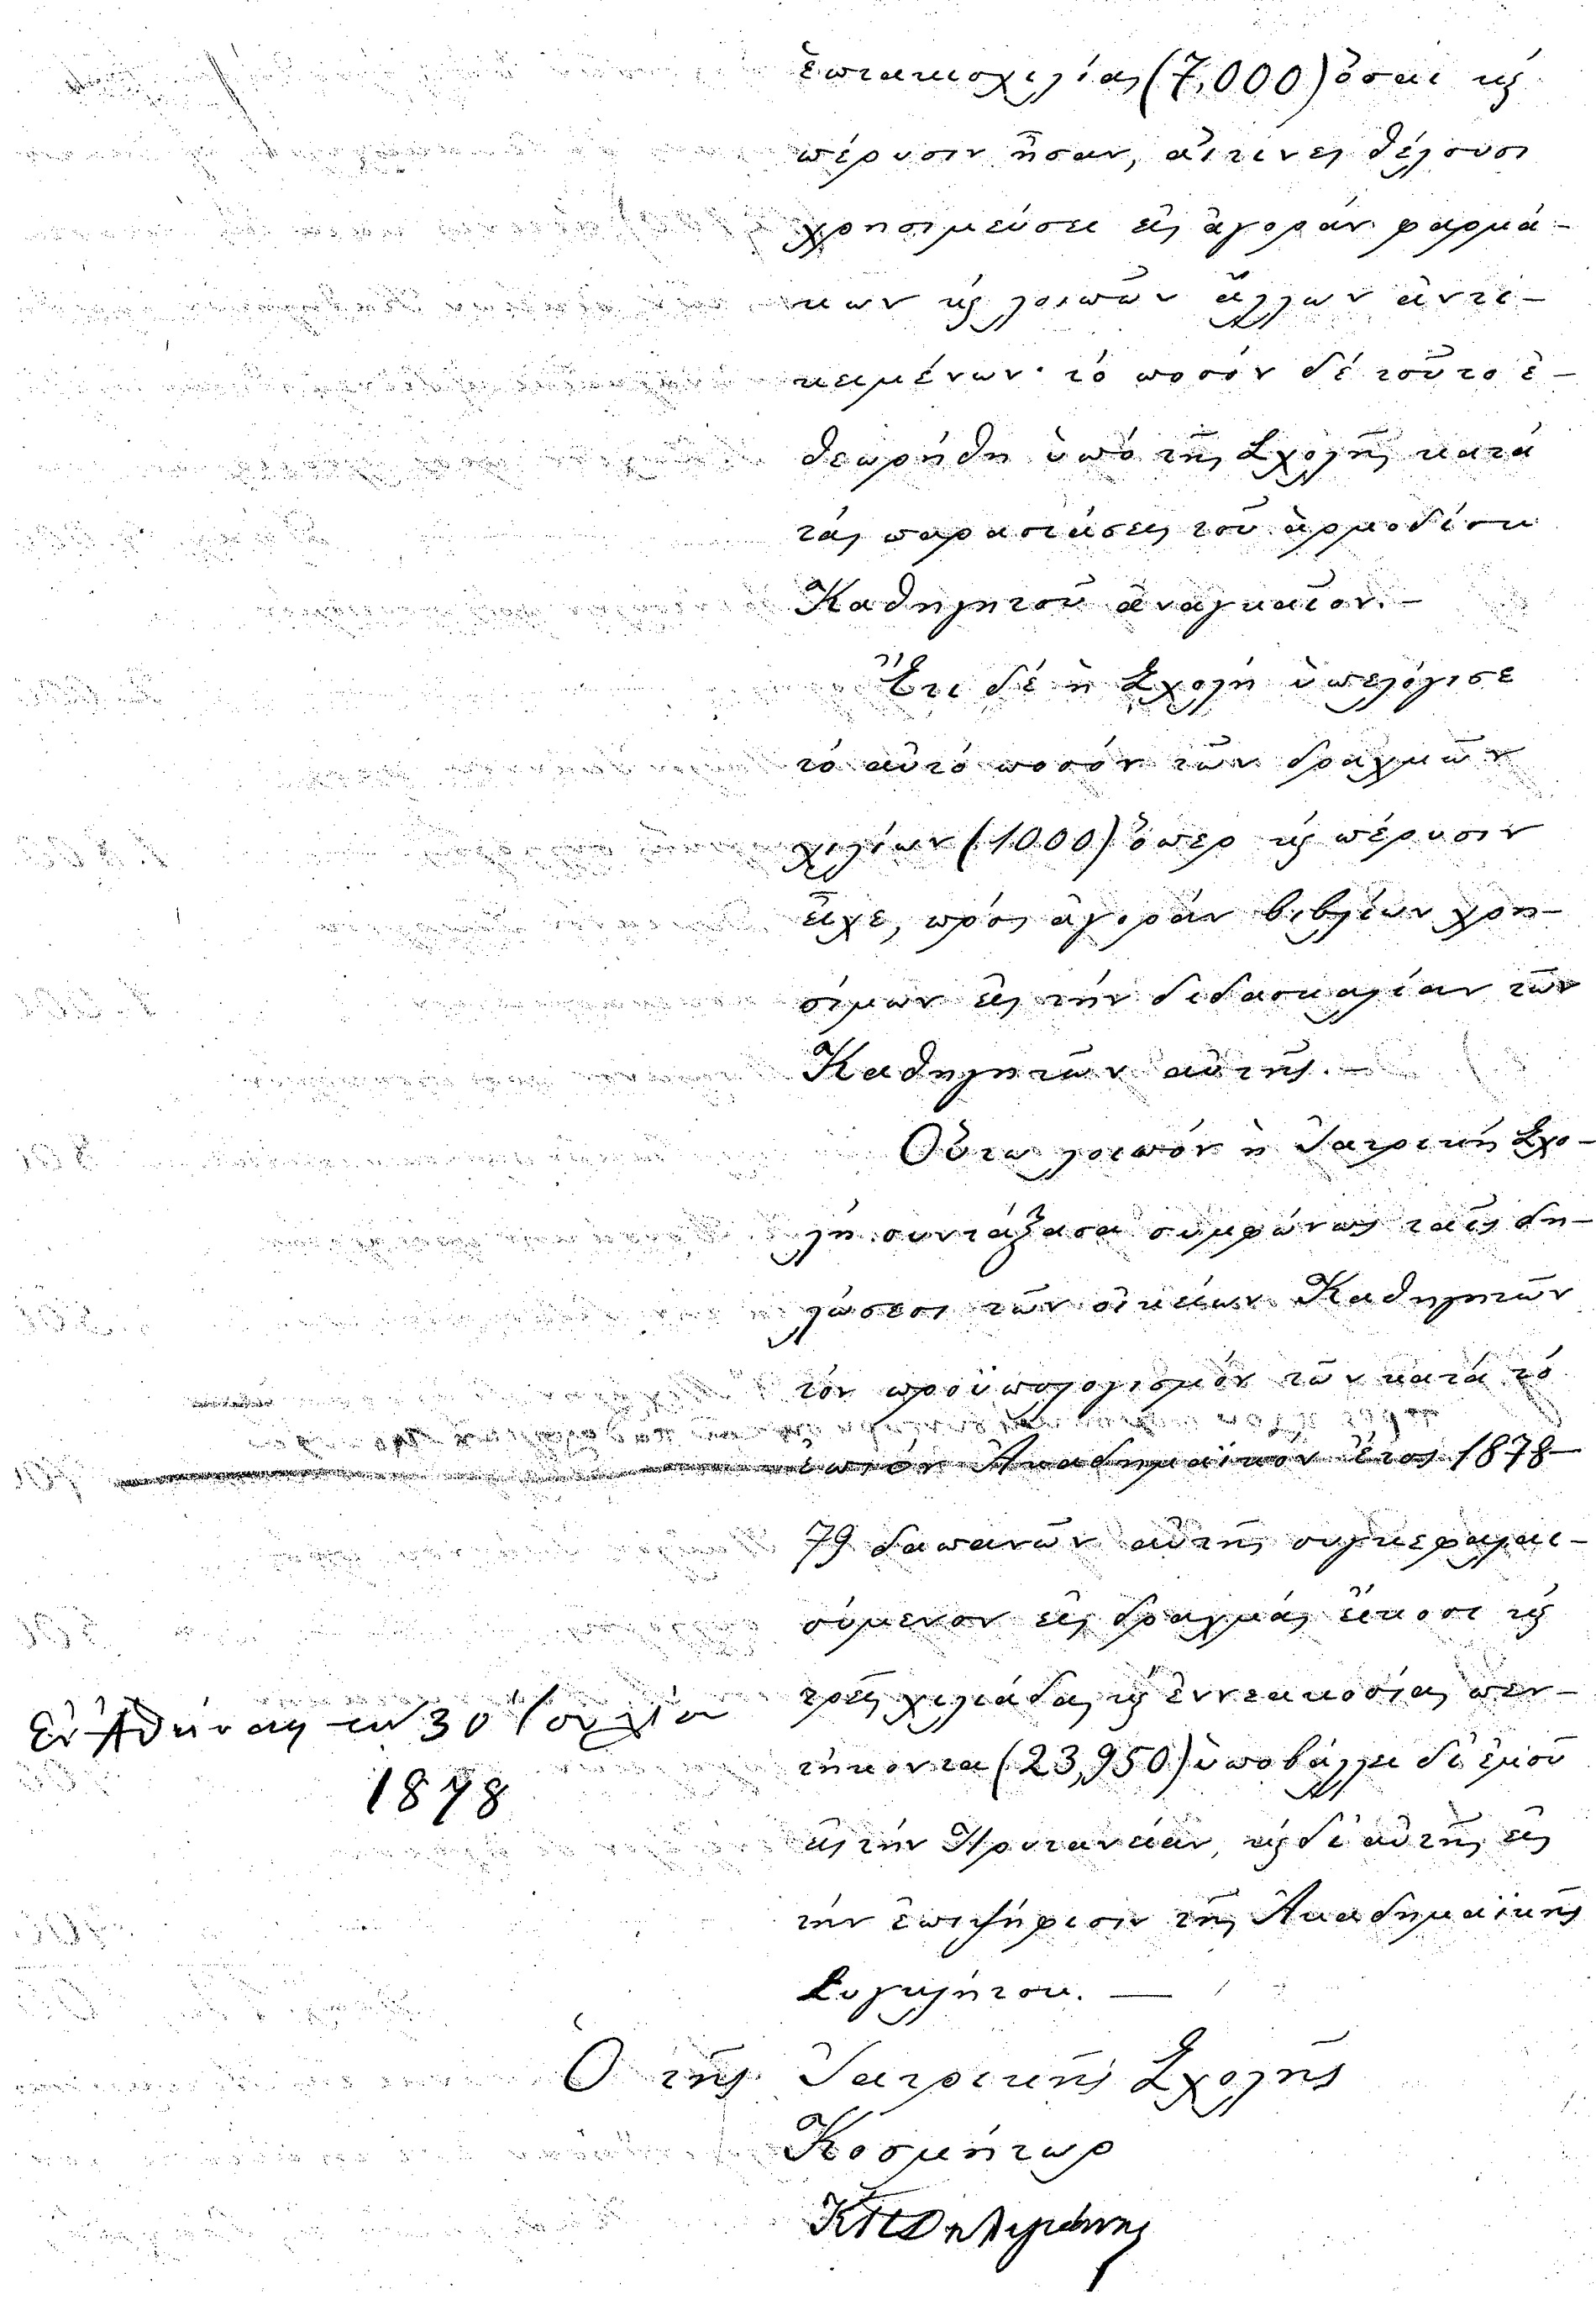 ἑπτακισχιλίας (7,000) ὅσαι κ̀
πέρυσιν ἦσαν, αἵτινες θέλουσι
χρησιμεύσει εἰς ἀγοράν φαρμά-
κων κ̀ λοιπῶν ἄλλων ἀντι-
κειμένων· τό ποσόν δέ τοῦτο ἐ-
θεωρήθη ὑπό τῆς Σχολῆς κατά
τάς παραστάσεις τοῦ ἁρμοδίου
Καθηγητοῦ ἀναγκαῖον.—
Ἔτι δέ ἡ Σχολή ὑπελόγισε
τό αὐτό ποσόν τῶν δραχμῶν
χιλίων (1000) ὅπερ κ̀ πέρυσιν
εἶχε, πρός ἀγοράν βιβλίων χρη-
σίμων εἰς τήν διδασκαλίαν τῶν
Καθηγητῶν αὐτῆς.—
Οὕτω λοιπόν ἡ Ἰατρική Σχο-
λή συντάξασα συμφώνως ταῖς δη-
λώσεσι τῶν οἰκείων Καθηγητῶν
τόν προϋπολογισμόν τῶν κατά τό
ἐπιόν Ἀκαδημαϊκόν ἔτος 1878-
79 δαπανῶν αὐτῆς συγκεφαλαι-
ούμενον εἰς δραχμάς εἴκοσι κ̀
τρεῖς χιλιάδας κ̀ ἐννεακοσίας πεν-
τήκοντα (23,950) ὑποβάλλει δι' ἐμοῦ
εἰς τήν Πρυτανείαν, κ̀ δι' αὐτῆς εἰς
τήν ἐπιψήφισιν τῆς Ἀκαδημαϊκῆς
Συγκλήτου.—
Ἐν Ἀθήναις τῇ 30 Ἰουλίου
1878
Ὁ τῆς Ἰατρικῆς Σχολῆς
Κοσμήτωρ